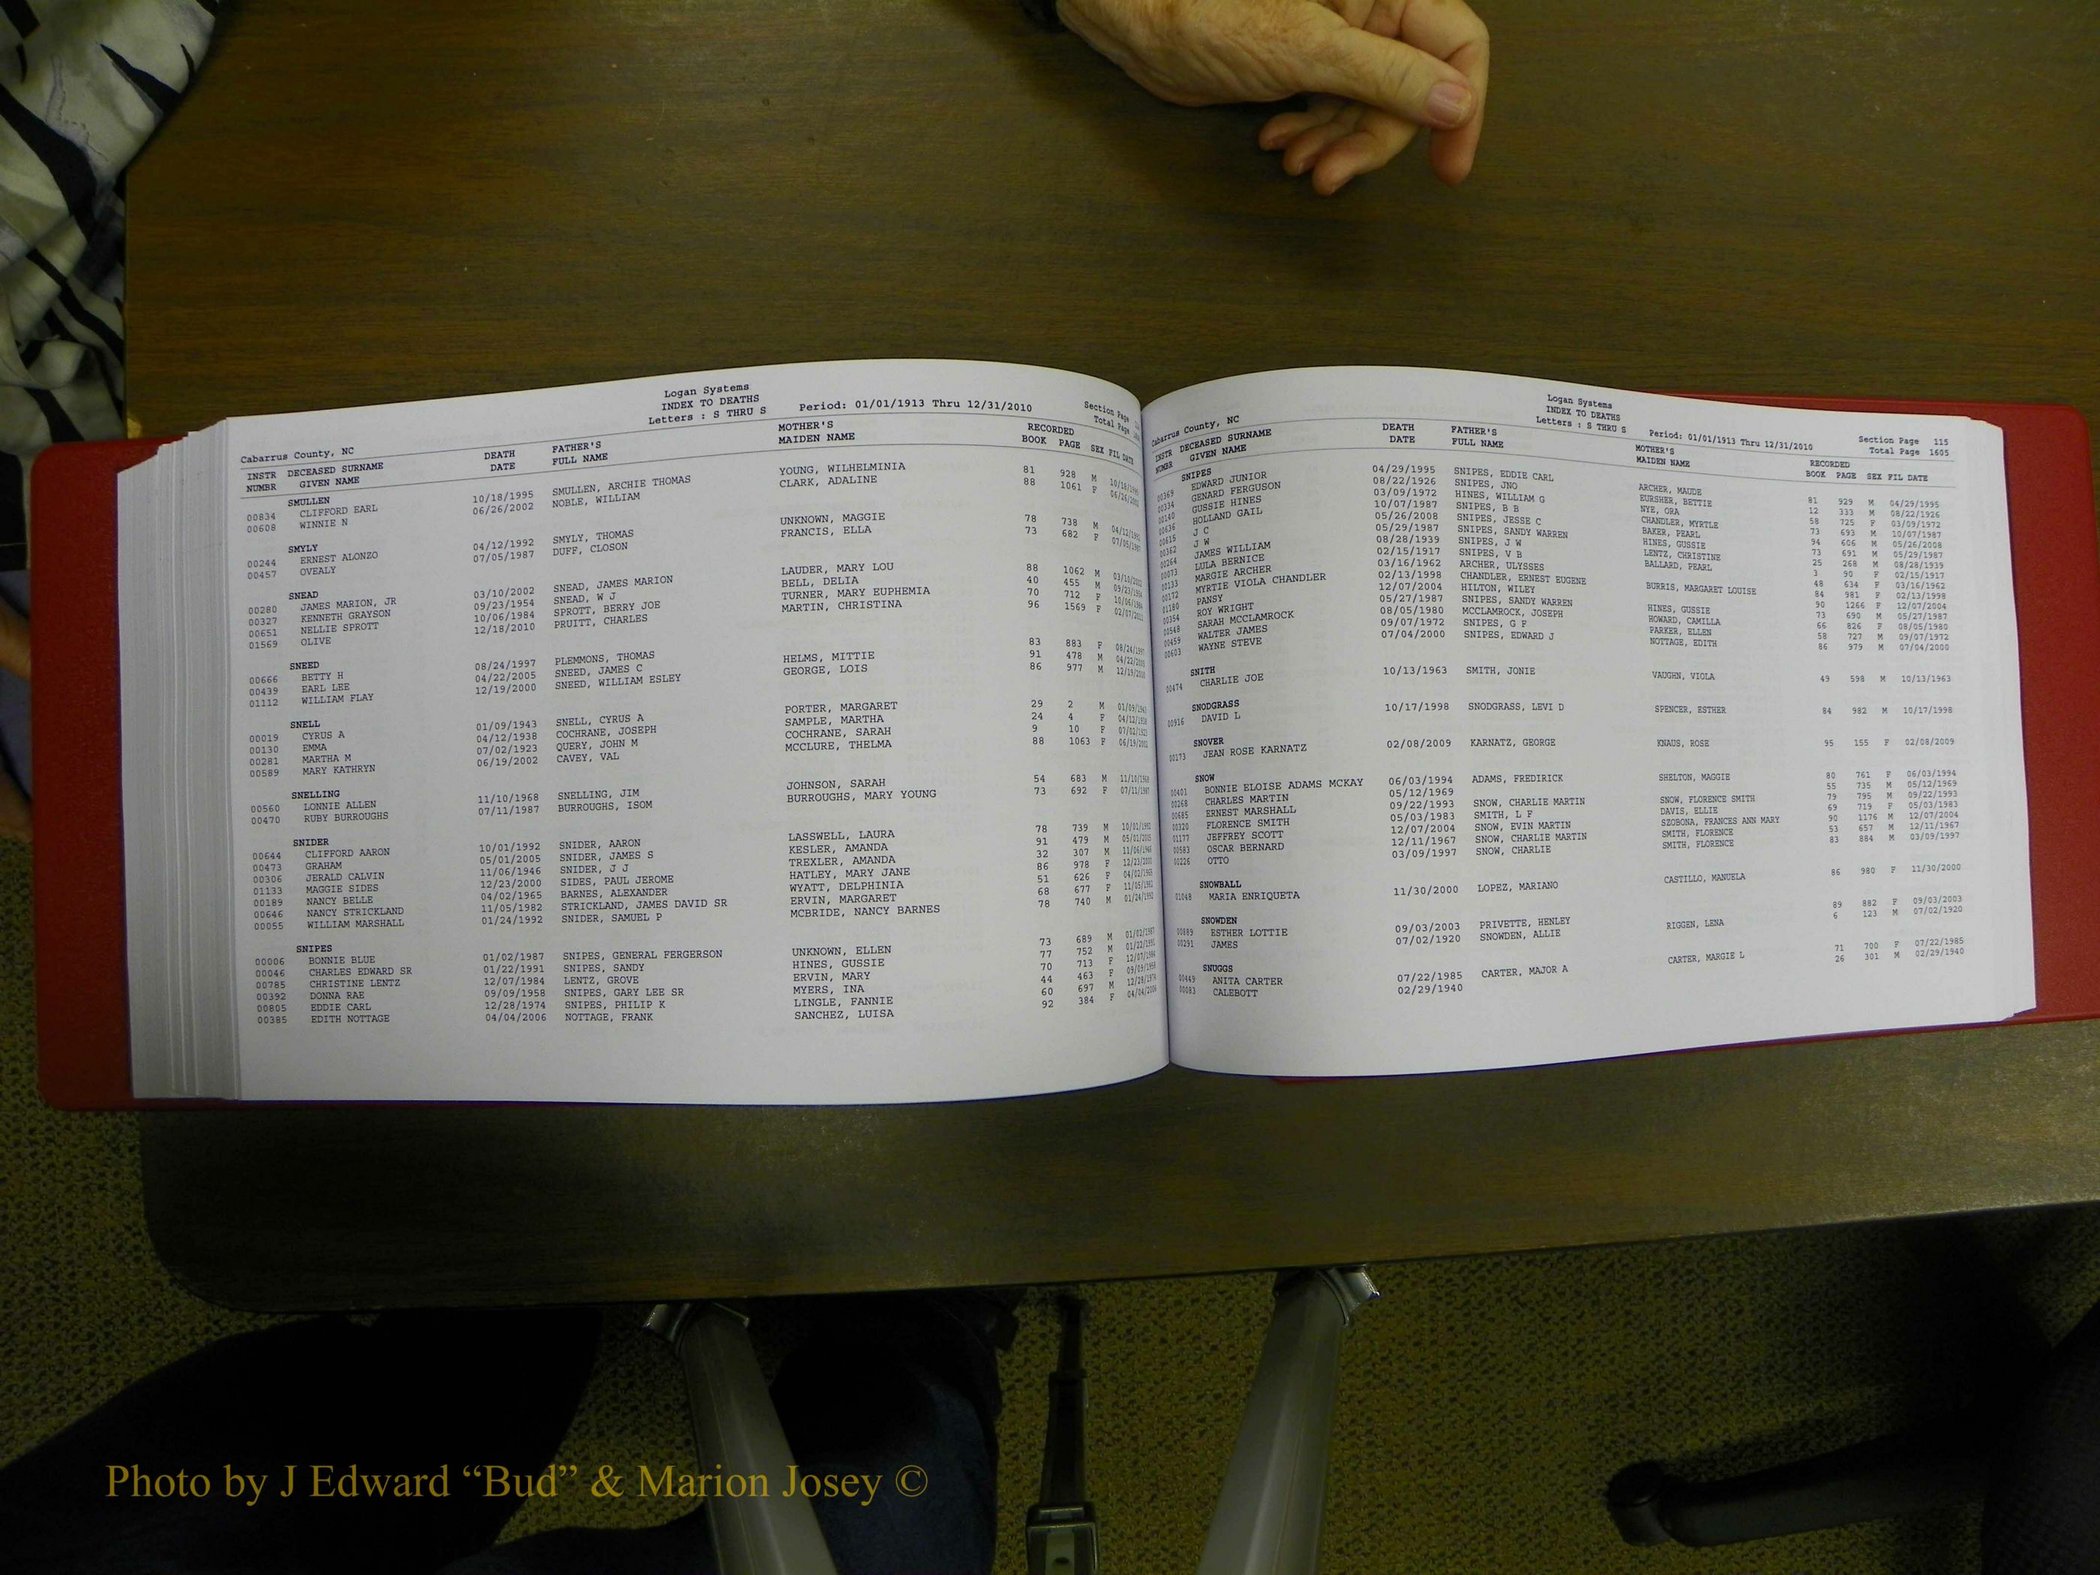 Logan Systems
INDEX TO DEATHS
Letters : S THRU S Period: 01/01/1913 Thru 12/31/2010 Section Page
Cabarrus County, NC Total Page
INSTR DECEASED SURNAME DEATH FATHER'S MOTHER'S RECORDED
NUMBR GIVEN NAME DATE FULL NAME MAIDEN NAME BOOK PAGE SEX FIL DATE
SMULLEN
00834 CLIFFORD EARL 10/18/1995 SMULLEN, ARCHIE THOMAS YOUNG, WILHELMINIA 81 928 M 10/18/1995
00608 WINNIE N 06/26/2002 NOBLE, WILLIAM CLARK, ADALINE 88 1061 F 06/26/2002
SMYLY
00244 ERNEST ALONZO 04/12/1992 SMYLY, THOMAS UNKNOWN, MAGGIE 78 738 M 04/12/1992
00457 OVEALY 07/05/1987 DUFF, CLOSON FRANCIS, ELLA 73 682 F 07/05/1987
SNEAD
00280 JAMES MARION, JR 03/10/2002 SNEAD, JAMES MARION LAUDER, MARY LOU 88 1062 M 03/10/2002
00327 KENNETH GRAYSON 09/23/1954 SNEAD, W J BELL, DELIA 40 455 M 09/23/1954
00651 NELLIE SPROTT 10/06/1984 SPROTT, BERRY JOE TURNER, MARY EUPHEMIA 70 712 F 10/06/1984
01569 OLIVE 12/18/2010 PRUITT, CHARLES MARTIN, CHRISTINA 96 1569 F 02/07/2011
SNEED
00666 BETTY H 08/24/1997 PLEMMONS, THOMAS 83 883 F 08/24/1997
00439 EARL LEE 04/22/2005 SNEED, JAMES C HELMS, MITTIE 91 478 M 04/22/2005
01112 WILLIAM FLAY 12/19/2000 SNEED, WILLIAM ESLEY GEORGE, LOIS 86 977 M 12/19/2000
SNELL
00019 CYRUS A 01/09/1943 SNELL, CYRUS A PORTER, MARGARET 29 2 M 01/09/1943
00130 EMMA 04/12/1938 COCHRANE, JOSEPH SAMPLE, MARTHA 24 4 F 04/12/1938
00281 MARTHA M 07/02/1923 QUERY, JOHN M COCHRANE, SARAH 9 10 F 07/02/1923
00589 MARY KATHRYN 06/19/2002 CAVEY, VAL MCCLURE, THELMA 88 1063 F 06/19/2002
SNELLING
00560 LONNIE ALLEN 11/10/1968 SNELLING, JIM JOHNSON, SARAH 54 683 M 11/10/1968
00470 RUBY BURROUGHS 07/11/1987 BURROUGHS, ISOM BURROUGHS, MARY YOUNG 73 692 F 07/11/1987
SNIDER
00644 CLIFFORD AARON 10/01/1992 SNIDER, AARON LASSWELL, LAURA 78 739 M 10/01/1992
00473 GRAHAM 05/01/2005 SNIDER, JAMES S KESLER, AMANDA 91 479 M 05/01/2005
00306 JERALD CALVIN 11/06/1946 SNIDER, J J TREXLER, AMANDA 32 307 M 11/06/1946
01133 MAGGIE SIDES 12/23/2000 SIDES, PAUL JEROME HATLEY, MARY JANE 86 978 F 12/23/2000
00189 NANCY BELLE 04/02/1965 BARNES, ALEXANDER WYATT, DELPHINIA 51 626 F 04/02/1965
00646 NANCY STRICKLAND 11/05/1982 STRICKLAND, JAMES DAVID SR ERVIN, MARGARET 68 677 F 11/05/1982
00055 WILLIAM MARSHALL 01/24/1992 SNIDER, SAMUEL P MCBRIDE, NANCY BARNES 78 740 M 01/24/1992
SNIPES
00006 BONNIE BLUE 01/02/1987 SNIPES, GENERAL FERGERSON UNKNOWN, ELLEN 73 689 M 01/02/1987
00046 CHARLES EDWARD SR 01/22/1991 SNIPES, SANDY HINES, GUSSIE 77 752 M 01/22/1991
00785 CHRISTINE LENTZ 12/07/1984 LENTZ, GROVE ERVIN, MARY 70 713 F 12/07/1984
00392 DONNA RAE 09/09/1958 SNIPES, GARY LEE SR MYERS, INA 44 463 F 09/09/1958
00805 EDDIE CARL 12/28/1974 SNIPES, PHILIP K LINGLE, FANNIE 60 697 M 12/28/1974
00385 EDITH NOTTAGE 04/04/2006 NOTTAGE, FRANK SANCHEZ, LUISA 92 384 F 04/04/2006
Logan Systems
INDEX TO DEATHS
Letters : S THRU S Period: 01/01/1913 Thru 12/31/2010 Section Page 115
Cabarrus County, NC Total Page 1605
INSTR DECEASED SURNAME DEATH FATHER'S MOTHER'S RECORDED
NUMBR GIVEN NAME DATE FULL NAME MAIDEN NAME BOOK PAGE SEX FIL DATE
SNIPES
00369 EDWARD JUNIOR 04/29/1995 SNIPES, EDDIE CARL ARCHER, MAUDE 81 929 M 04/29/1995
00334 GENARD FERGUSON 08/22/1926 SNIPES, JNO EURSHER, BETTIE 12 333 M 08/22/1926
00140 GUSSIE HINES 03/09/1972 HINES, WILLIAM G NYE, ORA 58 725 F 03/09/1972
00636 HOLLAND GAIL 10/07/1987 SNIPES, B B CHANDLER, MYRTLE 73 693 M 10/07/1987
00616 J C 05/26/2008 SNIPES, JESSE C BAKER, PEARL 94 606 M 05/26/2008
00362 J W 05/29/1987 SNIPES, SANDY WARREN HINES, GUSSIE 73 691 M 05/29/1987
00264 JAMES WILLIAM 08/28/1939 SNIPES, J W LENTZ, CHRISTINE 25 268 M 08/28/1939
00073 LULA BERNICE 02/15/1917 SNIPES, V B BALLARD, PEARL 3 90 F 02/15/1917
00133 MARGIE ARCHER 03/16/1962 ARCHER, ULYSSES 48 634 F 03/16/1962
00172 MYRTIE VIOLA CHANDLER 02/13/1998 CHANDLER, ERNEST EUGENE BURRIS, MARGARET LOUISE 84 981 F 02/13/1998
01180 PANSY 12/07/2004 HILTON, WILEY 90 1266 F 12/07/2004
00354 ROY WRIGHT 05/27/1987 SNIPES, SANDY WARREN HINES, GUSSIE 73 690 M 05/27/1987
00548 SARAH MCCLAMROCK 08/05/1980 MCCLAMROCK, JOSEPH HOWARD, CAMILLA 66 826 F 08/05/1980
00459 WALTER JAMES 09/07/1972 SNIPES, G F PARKER, ELLEN 58 727 M 09/07/1972
00603 WAYNE STEVE 07/04/2000 SNIPES, EDWARD J NOTTAGE, EDITH 86 979 M 07/04/2000
SNITH
00474 CHARLIE JOE 10/13/1963 SMITH, JONIE VAUGHN, VIOLA 49 598 M 10/13/1963
SNODGRASS
00916 DAVID L 10/17/1998 SNODGRASS, LEVI D SPENCER, ESTHER 84 982 M 10/17/1998
SNOVER
00173 JEAN ROSE KARNATZ 02/08/2009 KARNATZ, GEORGE KNAUS, ROSE 95 155 F 02/08/2009
SNOW
00401 BONNIE ELOISE ADAMS MCKAY 06/03/1994 ADAMS, FREDIRICK SHELTON, MAGGIE 80 761 F 06/03/1994
00268 CHARLES MARTIN 05/12/1969 55 735 M 05/12/1969
00685 ERNEST MARSHALL 09/22/1993 SNOW, CHARLIE MARTIN SNOW, FLORENCE SMITH 79 795 M 09/22/1993
00320 FLORENCE SMITH 05/03/1983 SMITH, L F DAVIS, ELLIE 69 719 F 05/03/1983
01177 JEFFREY SCOTT 12/07/2004 SNOW, EVIN MARTIN SZOBONA, FRANCES ANN MARY 90 1176 M 12/07/2004
00583 OSCAR BERNARD 12/11/1967 SNOW, CHARLIE MARTIN SMITH, FLORENCE 53 657 M 12/11/1967
00226 OTTO 03/09/1997 SNOW, CHARLIE SMITH, FLORENCE 83 884 M 03/09/1997
SNOWBALL
01048 MARIA ENRIQUETA 11/30/2000 LOPEZ, MARIANO CASTILLO, MANUELA 86 980 F 11/30/2000
SNOWDEN
00889 ESTHER LOTTIE 09/03/2003 PRIVETTE, HENLEY 89 882 F 09/03/2003
00291 JAMES 07/02/1920 SNOWDEN, ALLIE RIGGEN, LENA 6 123 M 07/02/1920
SNUGGS
00449 ANITA CARTER 07/22/1985 CARTER, MAJOR A CARTER, MARGIE L 71 700 F 07/22/1985
00083 CALEBOTT 02/29/1940 26 301 M 02/29/1940
Photo by J Edward “Bud” & Marion Josey ©